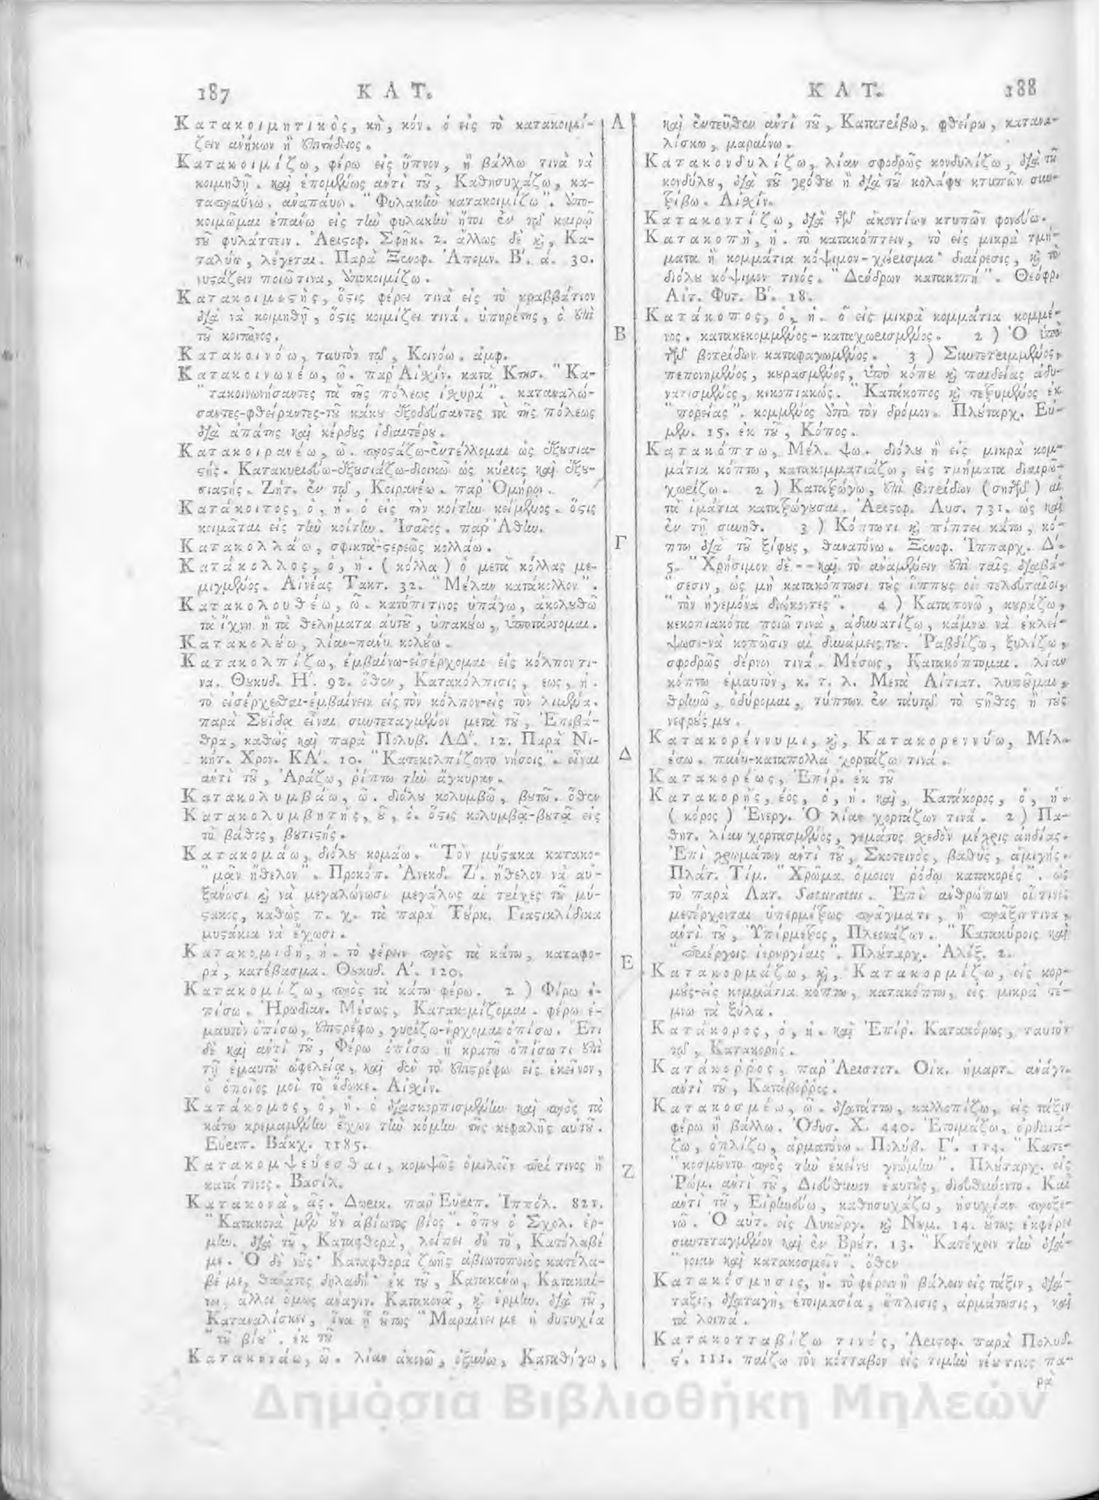 187 ΚΑΤ.
Κατακοιμητικός, κὴ, κόν. ὁ εἰς τὸ κατακοιμί-
ζειν ἀνήκων ἢ ἐπιτήδειος.
Κατακοιμίζω, φέρω εἰς ὕπνον, ἢ βάλλω τινὰ νὰ
κοιμηθῇ. καὶ ἑπομένως ἀντὶ τοῦ, Καθησυχάζω, κα-
ταπραΰνω, ἀναπαύω. "Φυλακὴν κατακοιμίζω". ἀπο-
κοιμῶμαι ἐπάνω εἰς τὴν φυλακὴν ἤτοι ἐν τῷ καιρῷ
τοῦ φυλάττειν. Ἀριστοφ. Σφηκ. 2. ἄλλως δὲ καὶ, Κα-
ταλύω, λέγεται. Παρὰ Ξενοφ. Ἀπομν. Β'. ά. 30.
νυστάζειν ποιῶ τινα, ἀποκοιμίζω.
Κατακοιμιστὴς, ὅστις φέρει τινὰ εἰς τὸ κραββάτιον
διὰ νὰ κοιμηθῇ, ὅστις κοιμίζει τινά. ὑπηρέτης, ὁ ἐπὶ
τοῦ κοιτῶνος.
Κατακοινόω, ταυτὸν τῷ, Κοινόω. ἀμφ.
Κατακοινωνέω, ῶ. παρ' Αἰσχίν. κατὰ Κτησ. "Κα-
"τακοινωνήσαντες τὰ τῆς πόλεως ἰσχυρά". καταναλώ-
σαντες-φθείραντες-τοῦ κακοῦ ἐξοδεύσαντες τὰ τῆς πόλεως
διὰ ἀπάτης καὶ κέρδους ἰδιαιτέρου.
Κατακοιρανέω, ῶ. προστάζω-ἐντέλλομαι ὡς ἐξουσια-
στής. Κατακυριεύω-ἐξουσιάζω-διοικῶ ὡς κύριος καὶ ἐξου-
σιαστής. Ζήτ. ἐν τῷ, Κοιρανέω. παρ' Ὁμήρῳ.
Κατάκοιτος, ὁ, ἡ. ὁ εἰς τὴν κοίτην κείμενος. ὅστις
κοιμᾶται εἰς τὴν κοίτην. Ἰσαῖος. παρ' Ἀθην.
Κατακολλάω, σφικτὰ-στερεῶς κολλάω.
Κατάκολλος, ὁ, ἡ. (κόλλα) ὁ μετὰ κόλλας με-
μιγμένος. Αἰνέας Τακτ. 32. "Μέλαν κατάκολλον".
Κατακολουθέω, ῶ. κατόπι τινος ὑπάγω, ἀκολουθῶ
τὰ ἴχνη ἢ τὰ θελήματα αὐτοῦ, ὑπακούω, ὑποτάσσομαι.
Κατακολούω, λίαν-πάνυ κολούω.
Κατακολπίζω, ἐμβαίνω-εἰσέρχομαι εἰς κόλπον τι-
να. Θουκυδ. Η'. 92. ὅθεν, Κατακόλπισις, εως, ἡ.
τὸ εἰσέρχεσθαι-ἐμβαίνειν εἰς τὸν κόλπον-εἰς τὸν λιμένα.
παρὰ Σουΐδα εἶναι συντεταγμένον μετὰ τοῦ, Ἐπιβά-
θρα, καθὼς καὶ παρὰ Πολυβ. ΛΔ'. 12. Παρὰ Νι-
κήτ. Χρον. ΚΑ'. 10. "Κατεκολπίζοντο νήσοις". εἶναι
ἀντὶ τοῦ, Ἀράζω, ῥίπτω τὴν ἄγκυραν.
Κατακολυμβάω, ῶ. διόλου κολυμβῶ, βουτῶ. ὅθεν
Κατακολυμβητής, οῦ, ὁ. ὅστις κολυμβᾷ-βουτᾷ εἰς
τὸ βάθος, βουτιστής.
Κατακομάω, διόλου κομάω. "Τὸν μύστακα κατακο-
"μᾶν ἤθελον". Προκόπ. Ἀνεκδ. Ζ'. ἤθελον νὰ αὐ-
ξάνωσι καὶ νὰ μεγαλώνωσι μεγάλως αἱ τρίχες τοῦ μύ-
στακος, καθὼς π. χ. τὰ παρὰ Τούρκ. Γιαστικλίδικα
μυστάκια νὰ ἔχωσι.
Κατακομιδὴ, ἡ. τὸ φέρειν πρὸς τὰ κάτω, καταφο-
ρὰ, κατέβασμα. Θουκυδ. Α'. 120.
Κατακομίζω, πρὸς τὰ κάτω φέρω. 2) Φέρω ὀ-
πίσω. Ἡρωδιαν. Μέσως, Κατακομίζομαι. φέρω ἐ-
μαυτὸν ὀπίσω, ἐπιστρέφω, γυρίζω-ἔρχομαι ὀπίσω. Ἔτι
δὲ καὶ ἀντὶ τοῦ, Φέρω ὀπίσω ἢ κρατῶ ὀπίσω τι ἐπὶ
τῇ ἐμαυτοῦ ὠφελείᾳ, καὶ δὲν τὸ ἐπιστρέφω εἰς ἐκεῖνον,
ὁ ὁποῖος μοὶ τὸ ἔδωκε. Αἰσχίν.
Κατάκομος, ὁ, ἡ. ὁ διασκορπισμένην καὶ πρὸς τὰ
κάτω κρεμαμένην ἔχων τὴν κόμην τῆς κεφαλῆς αὐτοῦ.
Εὐριπ. Βάκχ. 1185.
Κατακομψεύεσθαι, κομψῶς ὁμιλεῖν περί τινος ἢ
κατά τινος. Βασίλ.
Κατακονὰ, ᾶς. Δωρικ. παρ' Εὐριπ. Ἱππόλ. 821.
"Κατακονὰ μὲν οὖν ἀβίωτος βίος". ὅπου ὁ Σχολ. ἑρ-
μην. διὰ τοῦ, Καταφθορὰ, λείπει δὲ τὸ, Κατέλαβέ
με. Ὁ δὲ νοῦς· Καταφθορὰ ζωῆς ἀβιωτοποιὸς κατέλα-
βέ με, θάνατος δηλαδή· ἐκ τοῦ, Κατακένω, Κατακαί-
νω, ἄλλοι ὅμως ἀναγιν. Κατακονᾷ, καὶ ἑρμην. διὰ τοῦ,
Καταναλίσκει, ἵνα ᾖ οὕτως "Μαραίνει με ἡ δυστυχία
"τοῦ βίου". ἐκ τοῦ
Κατακονάω, ῶ. λίαν ἀκονῶ, ὀξύνω, Καταθίγω,
Α
Β
Γ
Δ
Ε
Ζ
ΚΑΤ. 188
καὶ ἐντεῦθεν ἀντὶ τοῦ, Κατατρίβω, φθείρω, κατανα-
λίσκω, μαραίνω.
Κατακονδυλίζω, λίαν σφοδρῶς κονδυλίζω, διὰ τοῦ
κονδύλου, διὰ τοῦ γρόθου ἢ διὰ τοῦ κολάφου κτυπῶν συν-
τρίβω. Αἰσχίν.
Κατακοντίζω, διὰ τῶν ἀκοντίων κτυπῶν φονεύω.
Κατακοπὴ, ἡ. τὸ κατακόπτειν, τὸ εἰς μικρὰ τμή-
ματα ἢ κομμάτια κόψιμον-χώρισμα· διαίρεσις, καὶ τὸ
διόλου κόψιμον τινός. "Δένδρων κατακοπή". Θεόφρ.
Αἰτ. Φυτ. Β'. 18.
Κατάκοπος, ὁ, ἡ. ὁ εἰς μικρὰ κομμάτια κομμέ-
νος. κατακεκομμένος-καταχωρισμένος. 2) Ὁ ὑπὸ
τῶν βοτρίδων καταφαγωμένος. 3) Συντετριμμένος,
πεπονημένος, κουρασμένος, ὑπὸ κόπου καὶ παιδείας ἀδυ-
νατισμένος, κικοπιακώς. "Κατάκοπος καὶ τετρυμένος ἐκ
"πορείας". κομμένος ἀπὸ τὸν δρόμον. Πλούταρχ. Εὐ-
μέν. 15. ἐκ τοῦ, Κόπος.
Κατακόπτω, Μέλ. ψω. διόλου ἢ εἰς μικρὰ κομ-
μάτια κόπτω, κατακομματιάζω, εἰς τμήματα διαιρῶ-
χωρίζω. 2) Κατατρώγω, ἐπὶ βοτρίδων (σητῶν) αἳ
τὰ ἱμάτια κατατρώγουσαι. Ἀριστοφ. Λυσ. 731. ὡς καὶ
ἐν τῇ συνηθ. 3) Κόπτω τι καὶ πίπτει κάτω, κό-
πτω διὰ τοῦ ξίφους, θανατόνω. Ξενοφ. Ἱππαρχ. Δ'.
5. "Χρήσιμον δὲ -- καὶ τὸ ἀναμένειν ἐπὶ ταῖς διαβά-
"σεσιν, ὡς μὴ κατακόπτωσι τοὺς ἵππους οἱ τελευταῖοι,
"τὸν ἡγεμόνα διώκοντες". 4) Καταπονῶ, κουράζω,
κεκοπιακότα ποιῶ τινὰ, ἀδυνατίζω, κάμνω νὰ ἐκλεί-
ψωσι-νὰ κοπῶσιν αἱ δυνάμεις του. Ῥαβδίζω, ξυλίζω,
σφοδρῶς δέρνω τινά. Μέσως, Κατακόπτομαι. λίαν
κόπτω ἐμαυτὸν, κ. τ. λ. Μετὰ Αἰτιατ. λυποῦμαι,
θρηνῶ, ὀδύρομαι, τύπτων ἐν ταυτῷ τὸ στῆθος ἢ τοὺς
νεφρούς μου.
Κατακορέννυμι, καὶ, Κατακορεννύω, Μέλ.
έσω. πάνυ-καταπολλὰ χορτάζω τινά.
Κατακορέως, Ἐπίῤ. ἐκ τοῦ
Κατακορὴς, έος, ὁ, ἡ. καὶ, Κατάκορος, ὁ, ἡ.
(κόρος) Ἐνεργ. Ὁ λίαν χορτάζων τινά. 2) Πα-
θητ. λίαν χορτασμένος, γεμάτος σχεδὸν μέχρις ἀηδίας.
Ἐπὶ χρωμάτων ἀντὶ τοῦ, Σκοτεινὸς, βαθὺς, ἀμιγής.
Πλάτ. Τίμ. "Χρῶμα ὅμοιον ῥόδῳ κατακορές". ὡς
τὸ παρὰ Λατ. Saturatus. Ἐπὶ ἀνθρώπων οἵτινες
μετέρχονται ὑπερμέτρως πράγματι, ἢ πράξει τινι,
ἀντὶ τοῦ, Ὑπέρμετρος, Πλεονάζων. "Κατακόροις καὶ
"περιέργοις ἱερουργίαις". Πλούταρχ. Ἀλεξ. 2.
Κατακορμάζω, καὶ, Κατακορμίζω, εἰς κορ-
μοὺς-εἰς κομμάτια κόπτω, κατακόπτω, εἰς μικρὰ τέ-
μνω τὰ ξύλα.
Κατάκορος, ὁ, ἡ. καὶ Ἐπίῤ. Κατακόρως, ταυτὸν
τῷ, Κατακορής.
Κατάκοῤῥος, παρ' Ἀριστοτ. Οἰκ. ἡμαρτ. ἀνάγν.
ἀντὶ τοῦ, Κατάβοῤῥος.
Κατακοσμέω, ῶ. διατάττω, καλλοπίζω, εἰς τάξιν
φέρω ἢ βάλλω. Ὀδυσ. Χ. 440. Ἑτοιμάζω, ὀρδινιά-
ζω, ὁπλίζω, ἁρματόνω. Πολύβ. Γ'. 114. "Κατε-
"κοσμοῦντο πρὸς τὴν ἐκείνου γνώμην". Πλούταρχ. εἰς
Ῥωμ. ἀντὶ τοῦ, Διεύθυνον ἑαυτοὺς, διευθύνοντο. Καὶ
ἀντὶ τοῦ, Εἰρηνεύω, καθησυχάζω, ἡσυχίαν προξε-
νῶ. Ὁ αὐτ. εἰς Λυκοῦργ. καὶ Νουμ. 14. οὕτως ἐκφέρει
συντεταγμένον καὶ ἐν Βρουτ. 13. "Κατέχειν τὴν διά-
"νοιαν καὶ κατακοσμεῖν". ὅθεν
Κατακόσμησις, ἡ. τὸ φέρειν ἢ βάλειν εἰς τάξιν, διά-
ταξις, διαταγὴ, ἑτοιμασία, ὅπλισις, ἁρμάτωσις, καὶ
τὰ λοιπά.
Κατακοτταβίζω τινός, Ἀριστοφ. παρὰ Πολυδ.
ς'. 111. παίζω τὸν κότταβον εἰς τιμὴν νέου τινος πα-
ρὰ
Δημόσια Βιβλιοθήκη Μηλεών